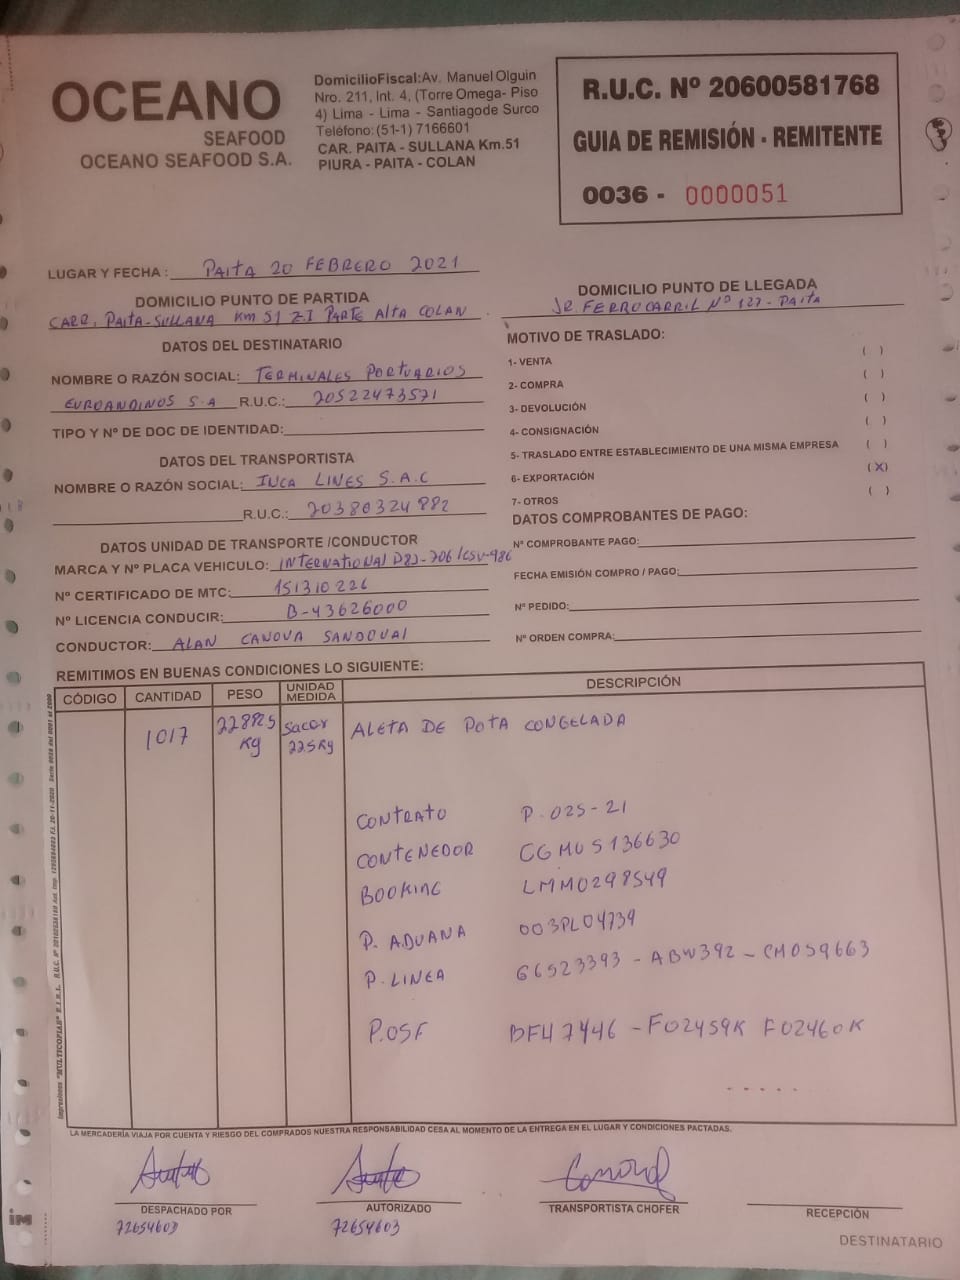 OCEANO
SEAFOOD
OCEANO SEAFOOD S.A.
DomicilioFiscal:Av. Manuel Olguin
Nro. 211, Int. 4, (Torre Omega- Piso
4) Lima - Lima - Santiagode Surco
Teléfono: (51-1) 7166601
CAR. PAITA - SULLANA Km.51
PIURA - PAITA - COLAN
R.U.C. Nº 20600581768
GUIA DE REMISIÓN - REMITENTE
0036 - 0000051
LUGAR Y FECHA : PAITA 20 FEBRERO 2021
DOMICILIO PUNTO DE PARTIDA
CARR. PAITA-SULLANA KM 51 Z.I PARTE ALTA COLAN
DOMICILIO PUNTO DE LLEGADA
JR. FERROCARRIL Nº 127 - PAITA
DATOS DEL DESTINATARIO
NOMBRE O RAZÓN SOCIAL: TERMINALES PORTUARIOS
EUROANDINOS S.A R.U.C.: 20522473571
TIPO Y Nº DE DOC DE IDENTIDAD:
DATOS DEL TRANSPORTISTA
NOMBRE O RAZÓN SOCIAL: INCA LINES S.A.C
R.U.C.: 20380324882
DATOS UNIDAD DE TRANSPORTE /CONDUCTOR
MARCA Y Nº PLACA VEHICULO: INTERNATIONAL
Nº CERTIFICADO DE MTC: 151310226
Nº LICENCIA CONDUCIR: B-43626000
CONDUCTOR: ALAN CANOVA SANDOVAL
MOTIVO DE TRASLADO:
1- VENTA ( )
2- COMPRA ( )
3- DEVOLUCIÓN ( )
4- CONSIGNACIÓN ( )
5- TRASLADO ENTRE ESTABLECIMIENTO DE UNA MISMA EMPRESA ( )
6- EXPORTACIÓN (X)
7- OTROS ( )
DATOS COMPROBANTES DE PAGO:
Nº COMPROBANTE PAGO:
FECHA EMISIÓN COMPRO / PAGO:
Nº PEDIDO:
Nº ORDEN COMPRA:
REMITIMOS EN BUENAS CONDICIONES LO SIGUIENTE:
CÓDIGO CANTIDAD PESO UNIDAD MEDIDA DESCRIPCIÓN
1017 Kg Sacos 22.5Kg ALETA DE POTA CONGELADA
CONTRATO P. 025-21
CONTENEDOR CGMU5136630
BOOKING LMM0298549
P. ADUANA 003PL04739
P. LINEA G6523393 - ABW392 - CM059663
P.OSF BF47446 - F02459K F02460K
LA MERCADERÍA VIAJA POR CUENTA Y RIESGO DEL COMPRADOS NUESTRA RESPONSABILIDAD CESA AL MOMENTO DE LA ENTREGA EN EL LUGAR Y CONDICIONES PACTADAS.
DESPACHADO POR
72654603
AUTORIZADO
72654603
TRANSPORTISTA CHOFER
RECEPCIÓN
DESTINATARIO
iM